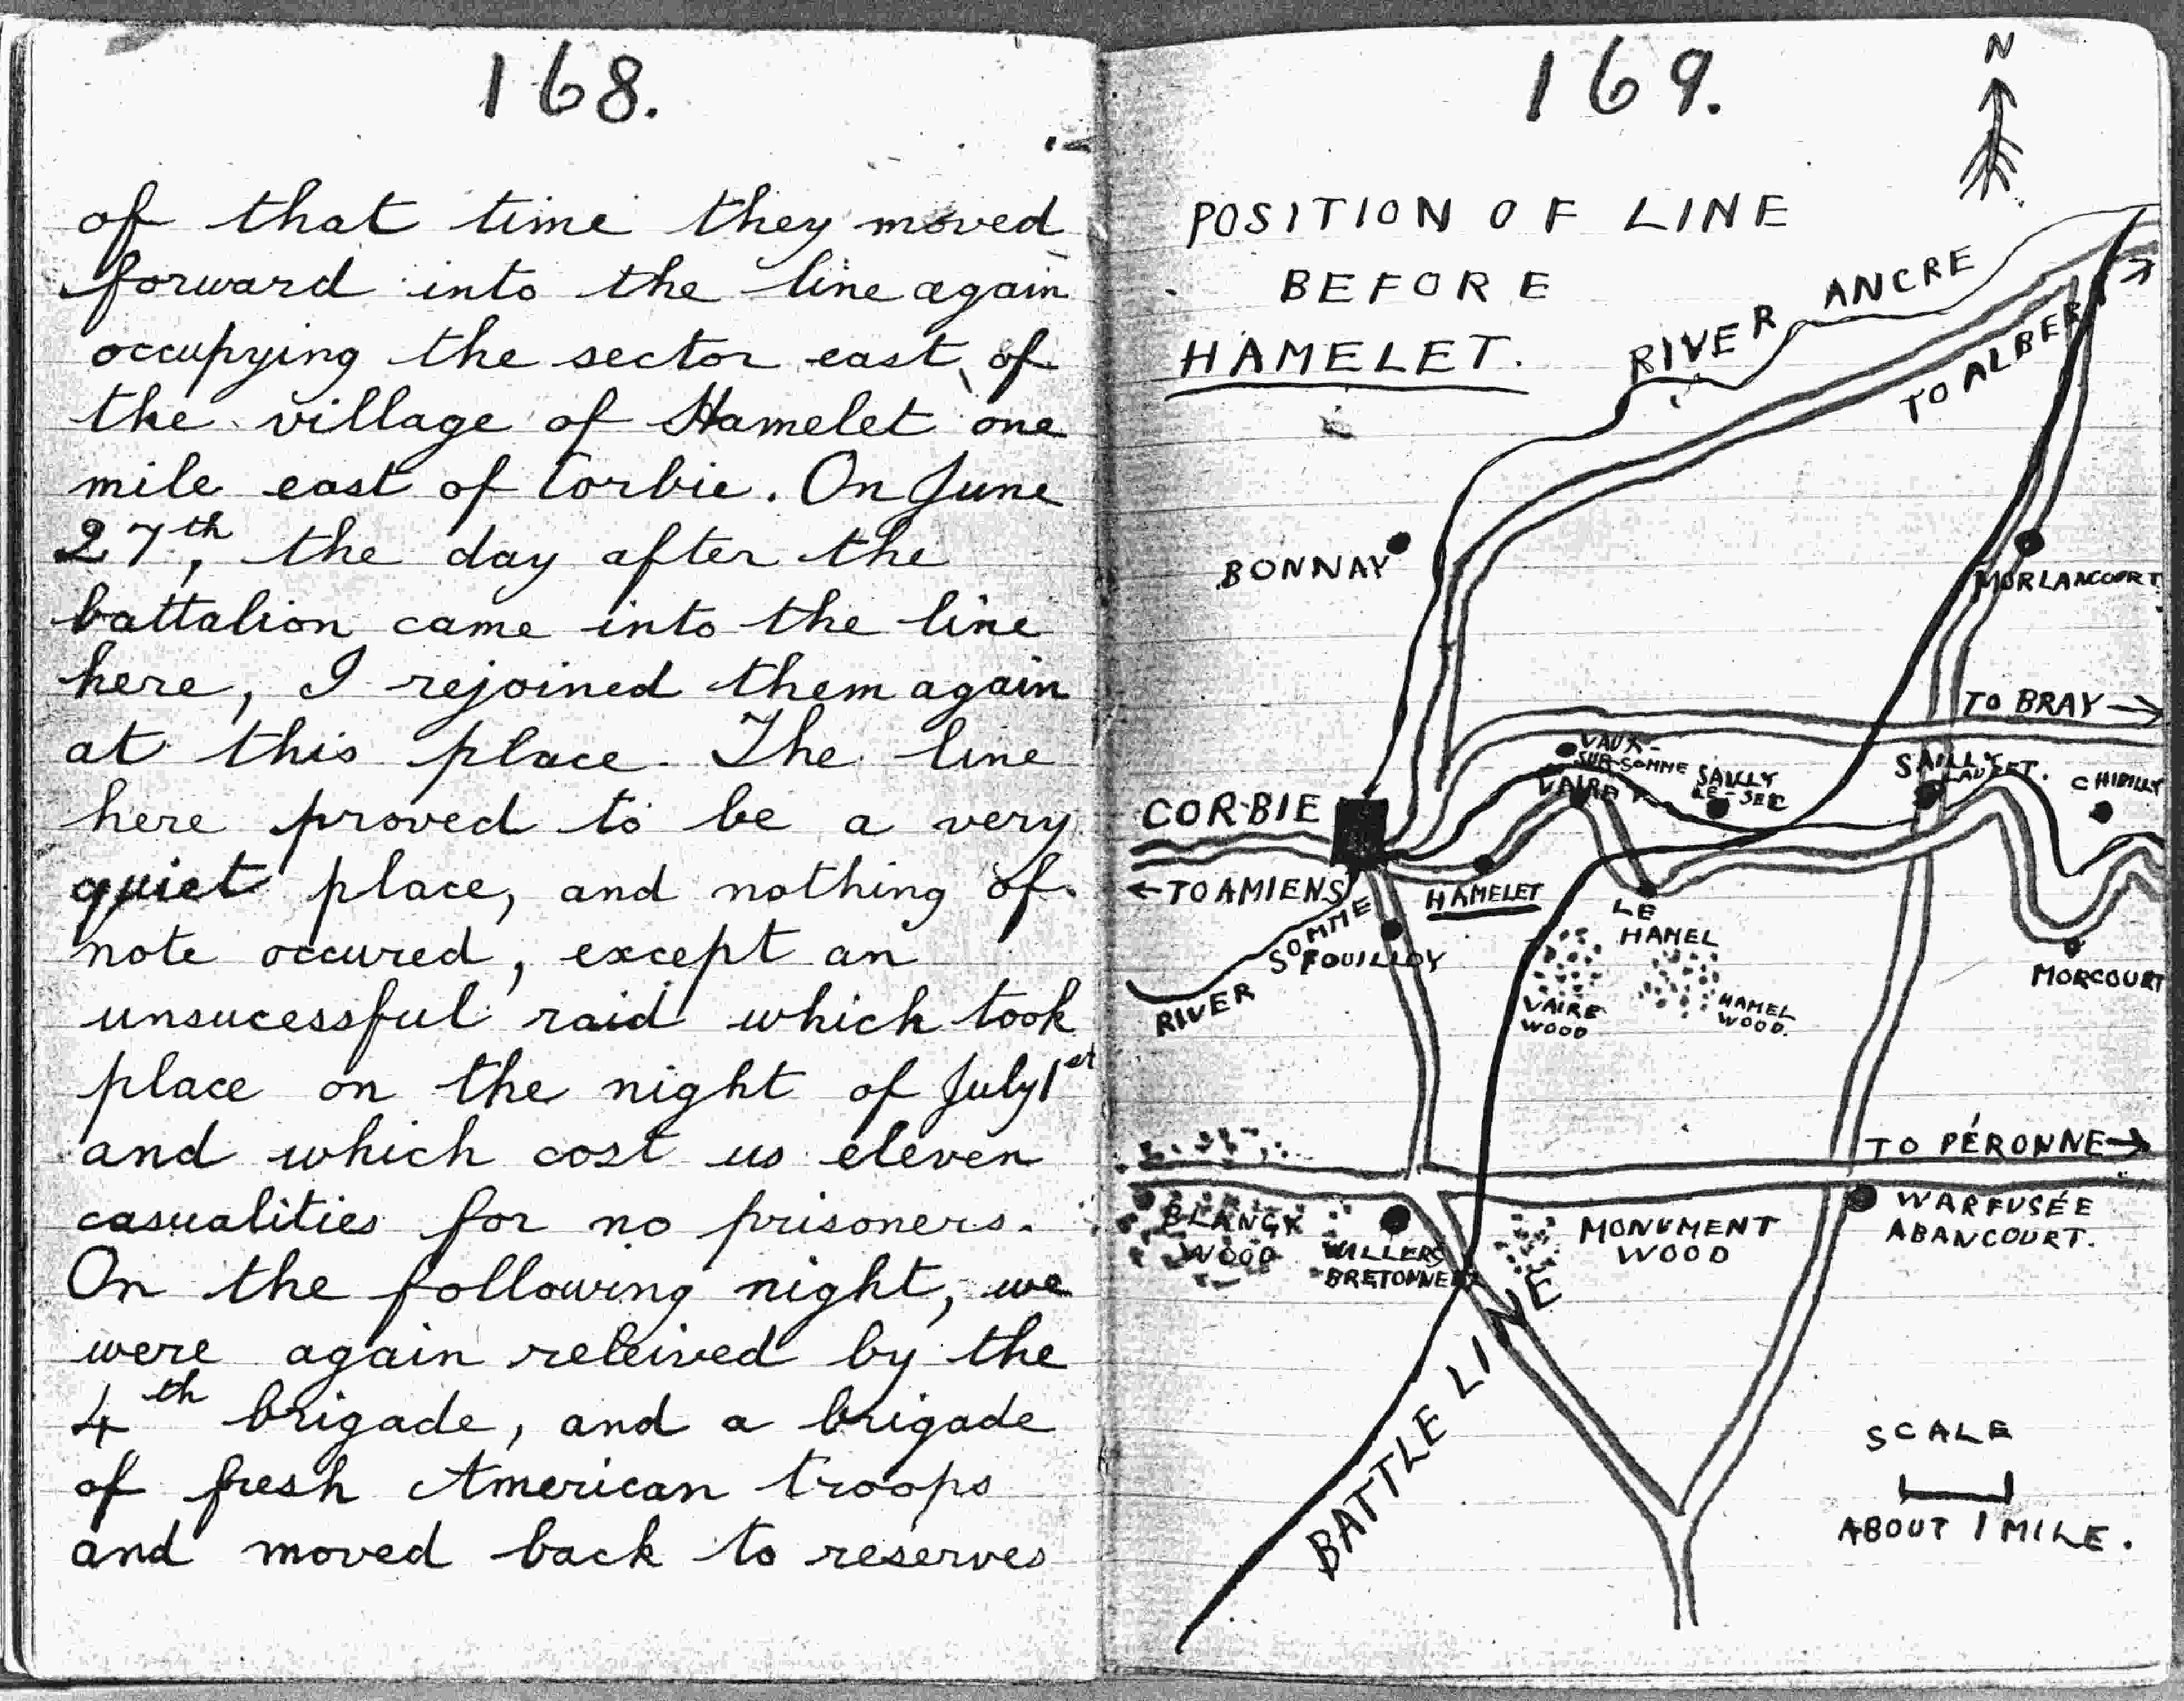 168.
of that time they moved
forward into the line again
occupying the sector east of
the village of Hamelet one
mile east of Corbie. On June
27th, the day after the
battalion came into the line
here, I rejoined them again
at this place. The line
here proved to be a very
quiet place, and nothing of
note occured, except an
unsucessful raid which took
place on the night of July 1st
and which cost us eleven
casualities for no prisoners.
On the following night, we
were again releived by the
4th brigade, and a brigade
of fresh American troops
and moved back to reserves
169.
N
POSITION OF LINE
BEFORE
HAMELET.
RIVER ANCRE
TO ALBERT
BONNAY
MORLANCOURT
TO BRAY
VAUX-
SUR-SOMME
VAIRE
SAILLY
LE-SEC
SAILLY
LAURET.
CHIPILLY
CORBIE
TO AMIENS
HAMELET
LE
HAMEL
RIVER SOMME
FOUILLOY
VAIRE
WOOD
HAMEL
WOOD.
MORCOURT
TO PÉRONNE
BLANGY
WOOD
VILLERS
BRETONNEUX
MONUMENT
WOOD
WARFUSÉE
ABANCOURT.
BATTLE LINE
SCALE
ABOUT 1 MILE.